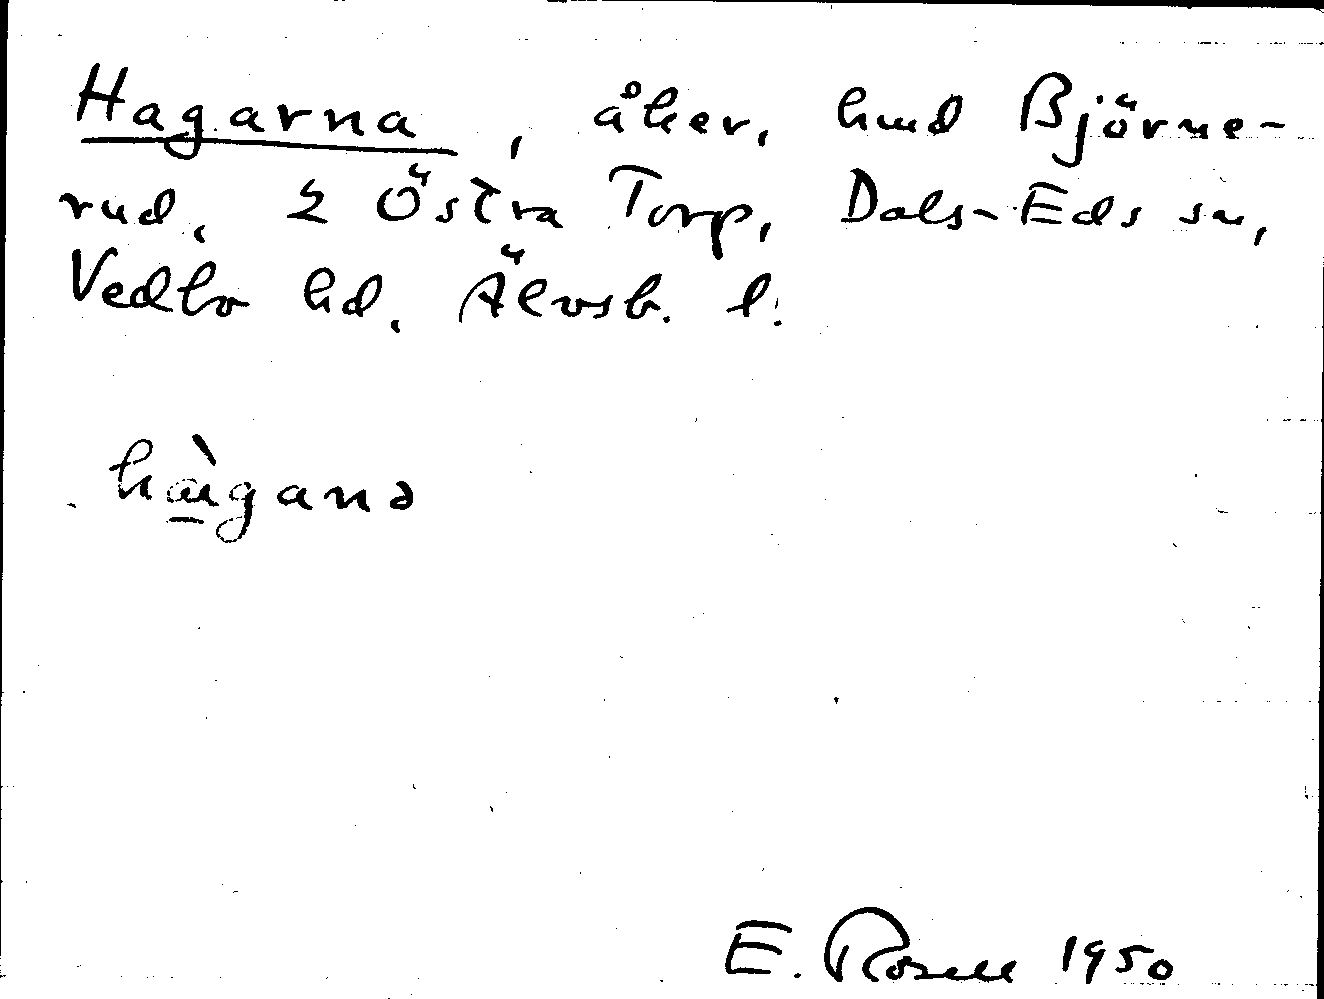 Hagarna, åker, hmd Björne-
rud, 2 Östra Torp, Dals-Eds sn,
Vedbo hd. Älvsb. l.
hàganə
E. Rosell 1950